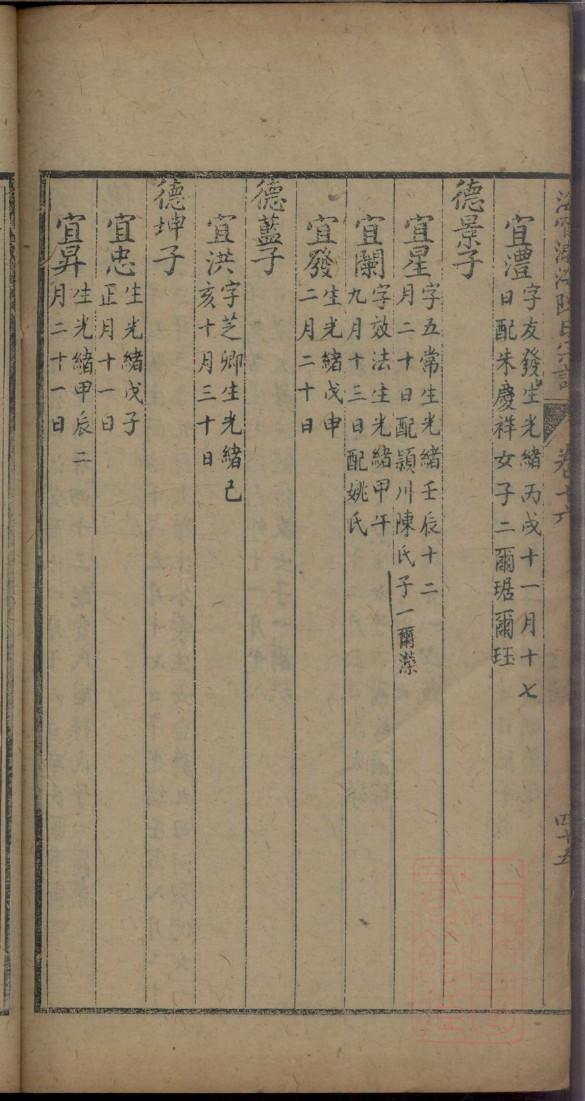 卷十六
四十五
宜澧 字友發生光緒丙戌十一月十七
日配朱慶祥女子二爾琚爾珏
德景子
宜星 字五常生光緒壬辰十二
月二十日配潁川陳氏子一爾濚
宜闌 字效法生光緒甲午
九月十三日配姚氏
宜發 生光緒戊申
二月二十日
德藍子
宜洪 字芝卿生光緒己
亥十月三十日
德坤子
宜忠 生光緒戊子
正月十一日
宜昇 生光緒甲辰二
月二十一日